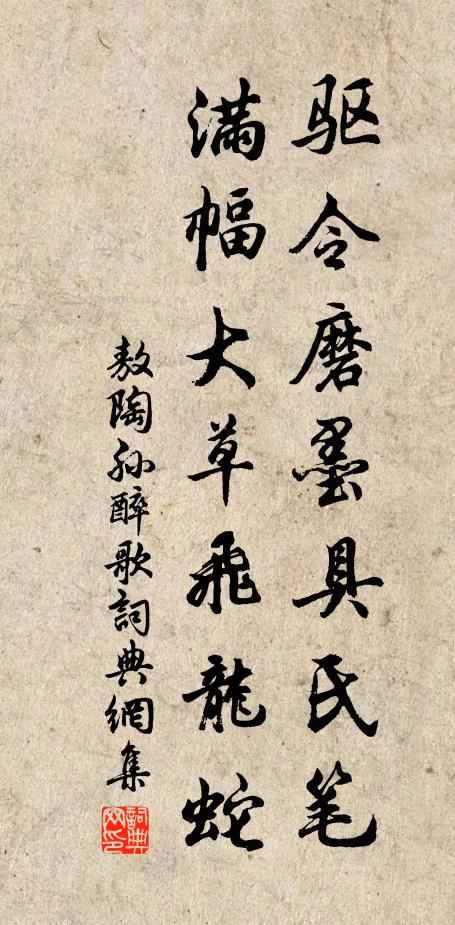 驱令磨墨具氏笔
满幅大草飛龍蛇
敖陶孙醉歌詞典網集
詞典
网印